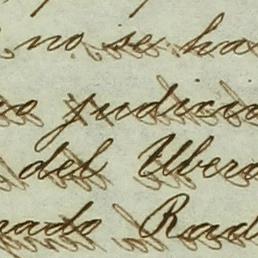 no se ha
judicia
del Ubera
rado Rad